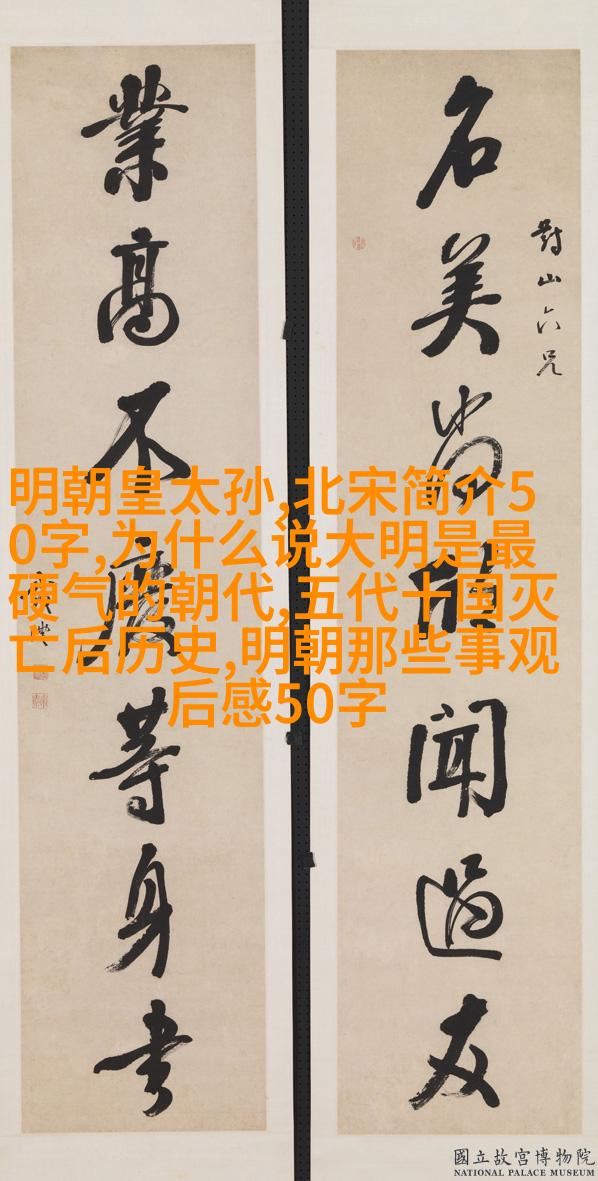 對山六兄
名美尚聞過友
業高不廢等身書
明朝皇太孙,北宋简介5
0字,为什么说大明是最
硬气的朝代,五代十国灭
亡后历史,明朝那些事观
后感50字
國立故宮博物院
NATIONAL PALACE MUSEUM